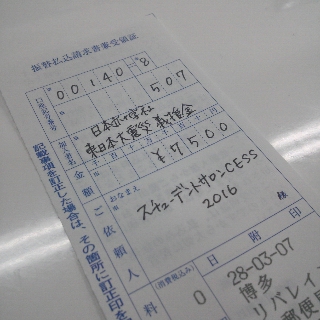 振替払込請求書兼受領証
00140 8
507
口座記号番号
日本赤十字社
東日本大震災 義援金
加入者名
金額
千 百 十 万 千 百 十 円
¥7500
おなまえ
スチューデントサロンCESS
2016
様
ご依頼人
料
(消費税込み)
0
日附印
28-03-07
博多
リバレイン
郵便局
記載事項を訂正した場合は、その箇所に訂正印を